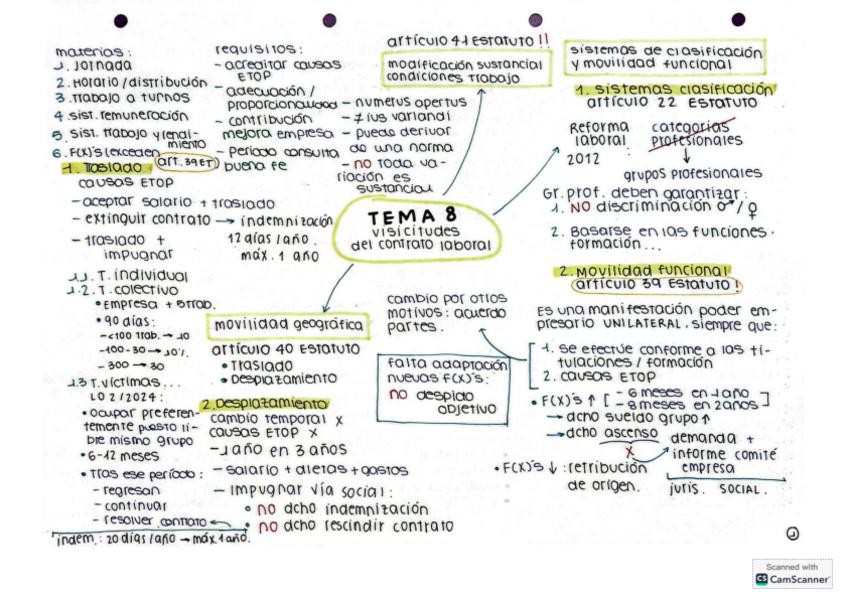 materias:
1. Jornada
2. Horario/distribución
3. Trabajo a turnos
4. sist. remuneración
5. sist. trabajo y rendi-
miento
6. F(x)'s (exceden
art. 39 ET)
requisitos:
- acreditar causas
ETOP
- adecuación /
proporcionalidad
- contribución
mejora empresa
- periodo consulta
buena fe
artículo 41 ESTATUTO !!
modificación sustancial
condiciones trabajo
- numerus apertus
- ≠ ius variandi
- puede derivar
de una norma
- no toda va-
riación es
sustancial
TEMA 8
visicitudes
del contrato laboral
sistemas de clasificación
y movilidad funcional
1. sistemas clasificación
artículo 22 ESTATUTO
Reforma
laboral
2012 :
categorias
profesionales
↓
grupos profesionales
Gr. prof. deben garantizar:
1. NO discriminación ♂/♀
2. Basarse en las funciones.
formación...
2. Movilidad funcional
artículo 39 ESTATUTO !
Es una manifestación poder em-
presario UNILATERAL, siempre que:
1. se efectúe conforme a las ti-
tulaciones / formación
2. causas ETOP
cambio por otros
motivos: acuerdo
partes.
falta adaptación
nuevas F(x)'s:
no despido
objetivo
• F(x)'s ↑ [ - 6 meses en 1 año
- 8 meses en 2 años ]
→ dcho sueldo grupo ↑
→ dcho ascenso
x
demanda +
informe comité
empresa
juris. SOCIAL.
• F(x)'s ↓: retribución
de origen.
movilidad geográfica
artículo 40 ESTATUTO
• Traslado
• Desplazamiento
1. Traslado
causas ETOP
- aceptar salario + traslado
- extinguir contrato → indemnización
12 días/año.
máx. 1 año
- traslado +
impugnar
1.1. T. individual
1.2. T. colectivo
• Empresa + 5 trab.
• 90 días:
- <100 trab. → 10
- 100-30 → 10%
- 300 → 30
1.3 T. víctimas...
LO 2/2024:
• ocupar preferen-
temente puesto li-
bre mismo grupo
• 6-12 meses
• Tras ese periodo:
- regresan
- continuar
- resolver contrato
indem.: 20 días/año → máx 1 año.
2. Desplazamiento
cambio temporal x
causas ETOP x
- 1 año en 3 años
- salario + dietas + gastos
- impugnar vía social:
• no dcho indemnización
• no dcho rescindir contrato
1
Scanned with
CS CamScanner